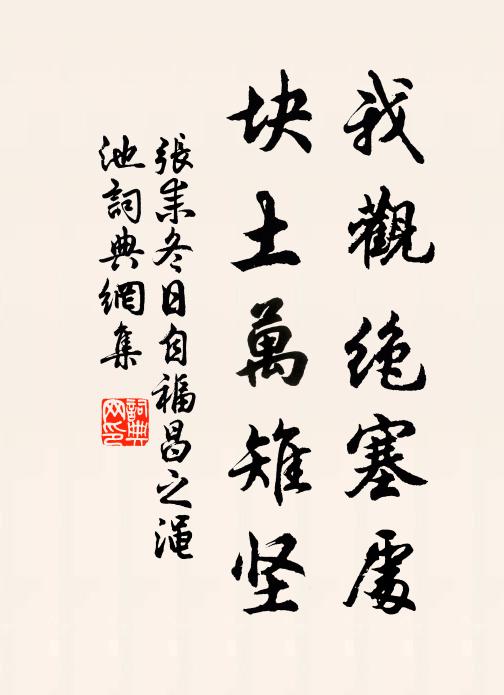 我觀绝塞處
块土萬雉坚
張耒冬日自福昌之渑
池詞典網集
詞典
网印